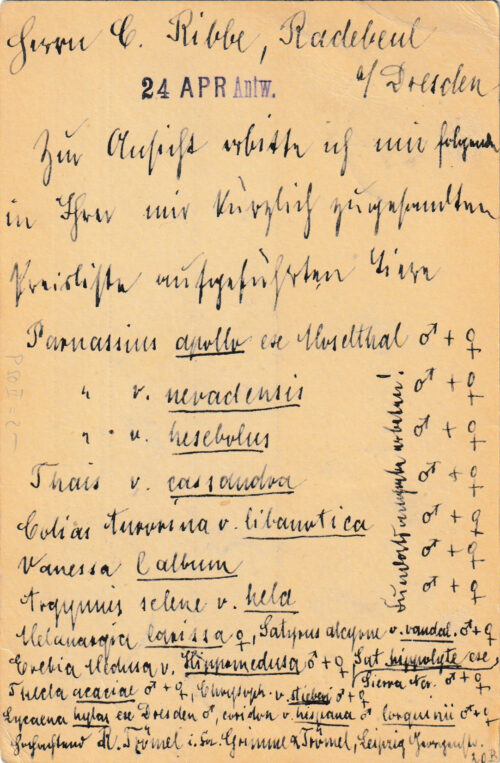 Herrn C. Ribbe, Radebeul
a/ Dresden
24 APR Antw.
Zur Ansicht erbitte ich mir folgende
in Ihrer mir kürzlich zugesandten
Preisliste aufgeführten Tiere
Parnassius apollo ex Moselthal ♂ + ♀
" v. nevadensis ♂ + ♀
" v. hesebolus ♂ + ♀
Thais v. cassandra ♂ + ♀
Colias Aurorina v. libanotica ♂ + ♀
Vanessa l album ♂ + ♀
Argynnis selene v. hela ♂ + ♀
Fundortsangabe erbeten!
Melanargia larissa ♀, Satyrus alcyone v. vandal. ♂ + ♀
Erebia Medusa v. Hippomedusa ♂ + ♀, Sat. hippolyte exe
Sierra Nev. ♂ + ♀
Thecla acaciae ♂ + ♀, Chrysoph. v. stieberi ♂ + ♀
Lycaena hylas ex Dresden ♂, coridon v. hispana ♂ lorquinii ♂ + ♀
Hochachtend R. Trömel i. Fa. Grimme & Trömel, Leipzig Georgenstr.